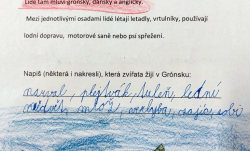 Lidé tam mluví grónsky, dánsky a anglicky.
Mezi jednotlivými osadami lidé létají letadly, vrtulníky, používají
lodní dopravu, motorové saně nebo psí spřežení.
Napiš (některá i nakresli), která zvířata žijí v Grónsku:
narval, plejtvák, tuleň, lední
medvěd, mrož, velryba, sobi